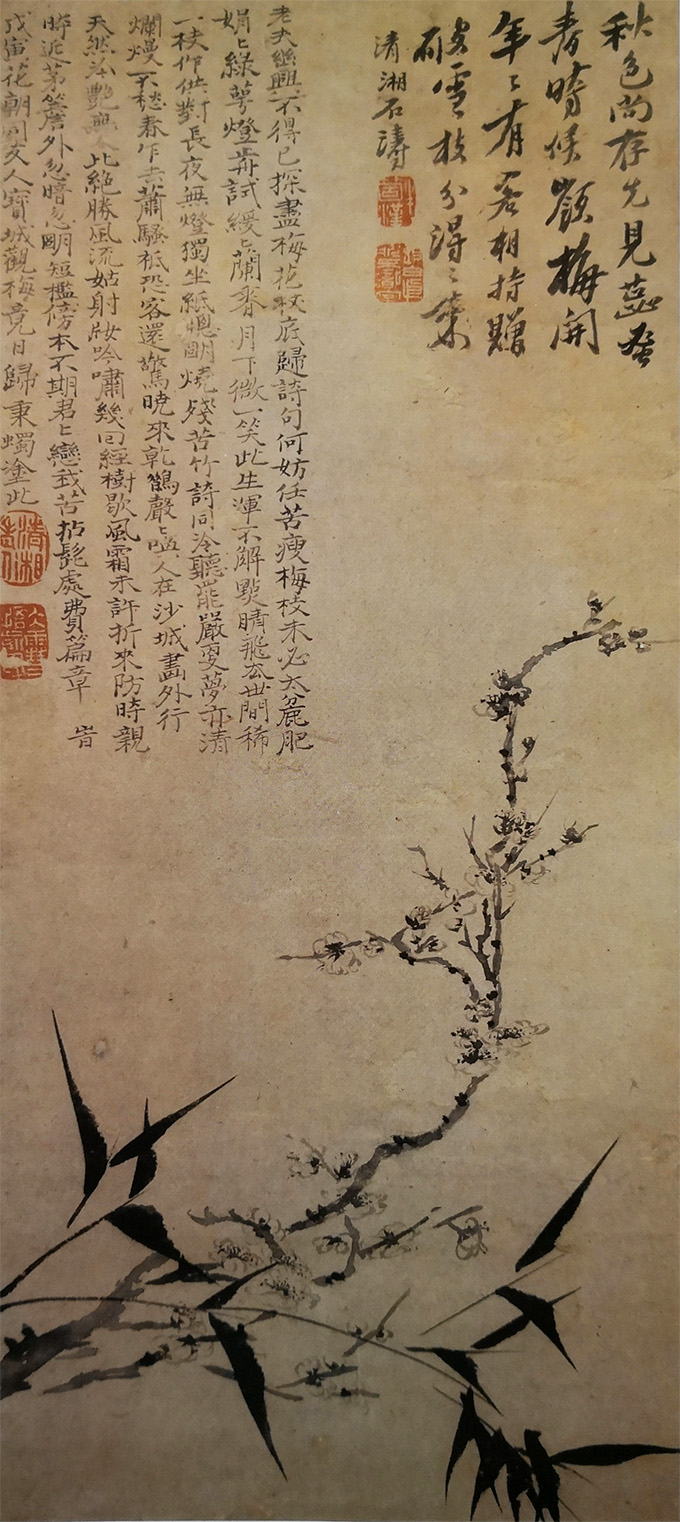 秋色尚存先見蕊蚤
春時候嶺梅開
年年有客相持贈
破雪枝分得得來
清湘石濤
老夫無興不得已探盡梅花枝底歸詩句何妨任苦瘦梅枝未必太麄肥
娟娟綠萼燈前試緩緩蘭香月下微一笑此生渾不解點睛飛去世間稀
一枝作供對長夜無燈獨坐紙窻明燒殘苦竹詩同冷聽罷嚴更夢亦清
爛熳不愁春乍去蕭騷祗恐客還驚曉來乾鵲聲聲喚人在沙城畫外行
天然冷艷無此絕勝風流姑射妝吟嘯幾回經樹歇風霜未許折來防時親
時近茅簷外忽暗忽明短檻傍本不期君君戀我苦拈髭處費篇章 旹
戊寅花朝同友人寶城觀梅竟日歸秉蠋塗此
清湘